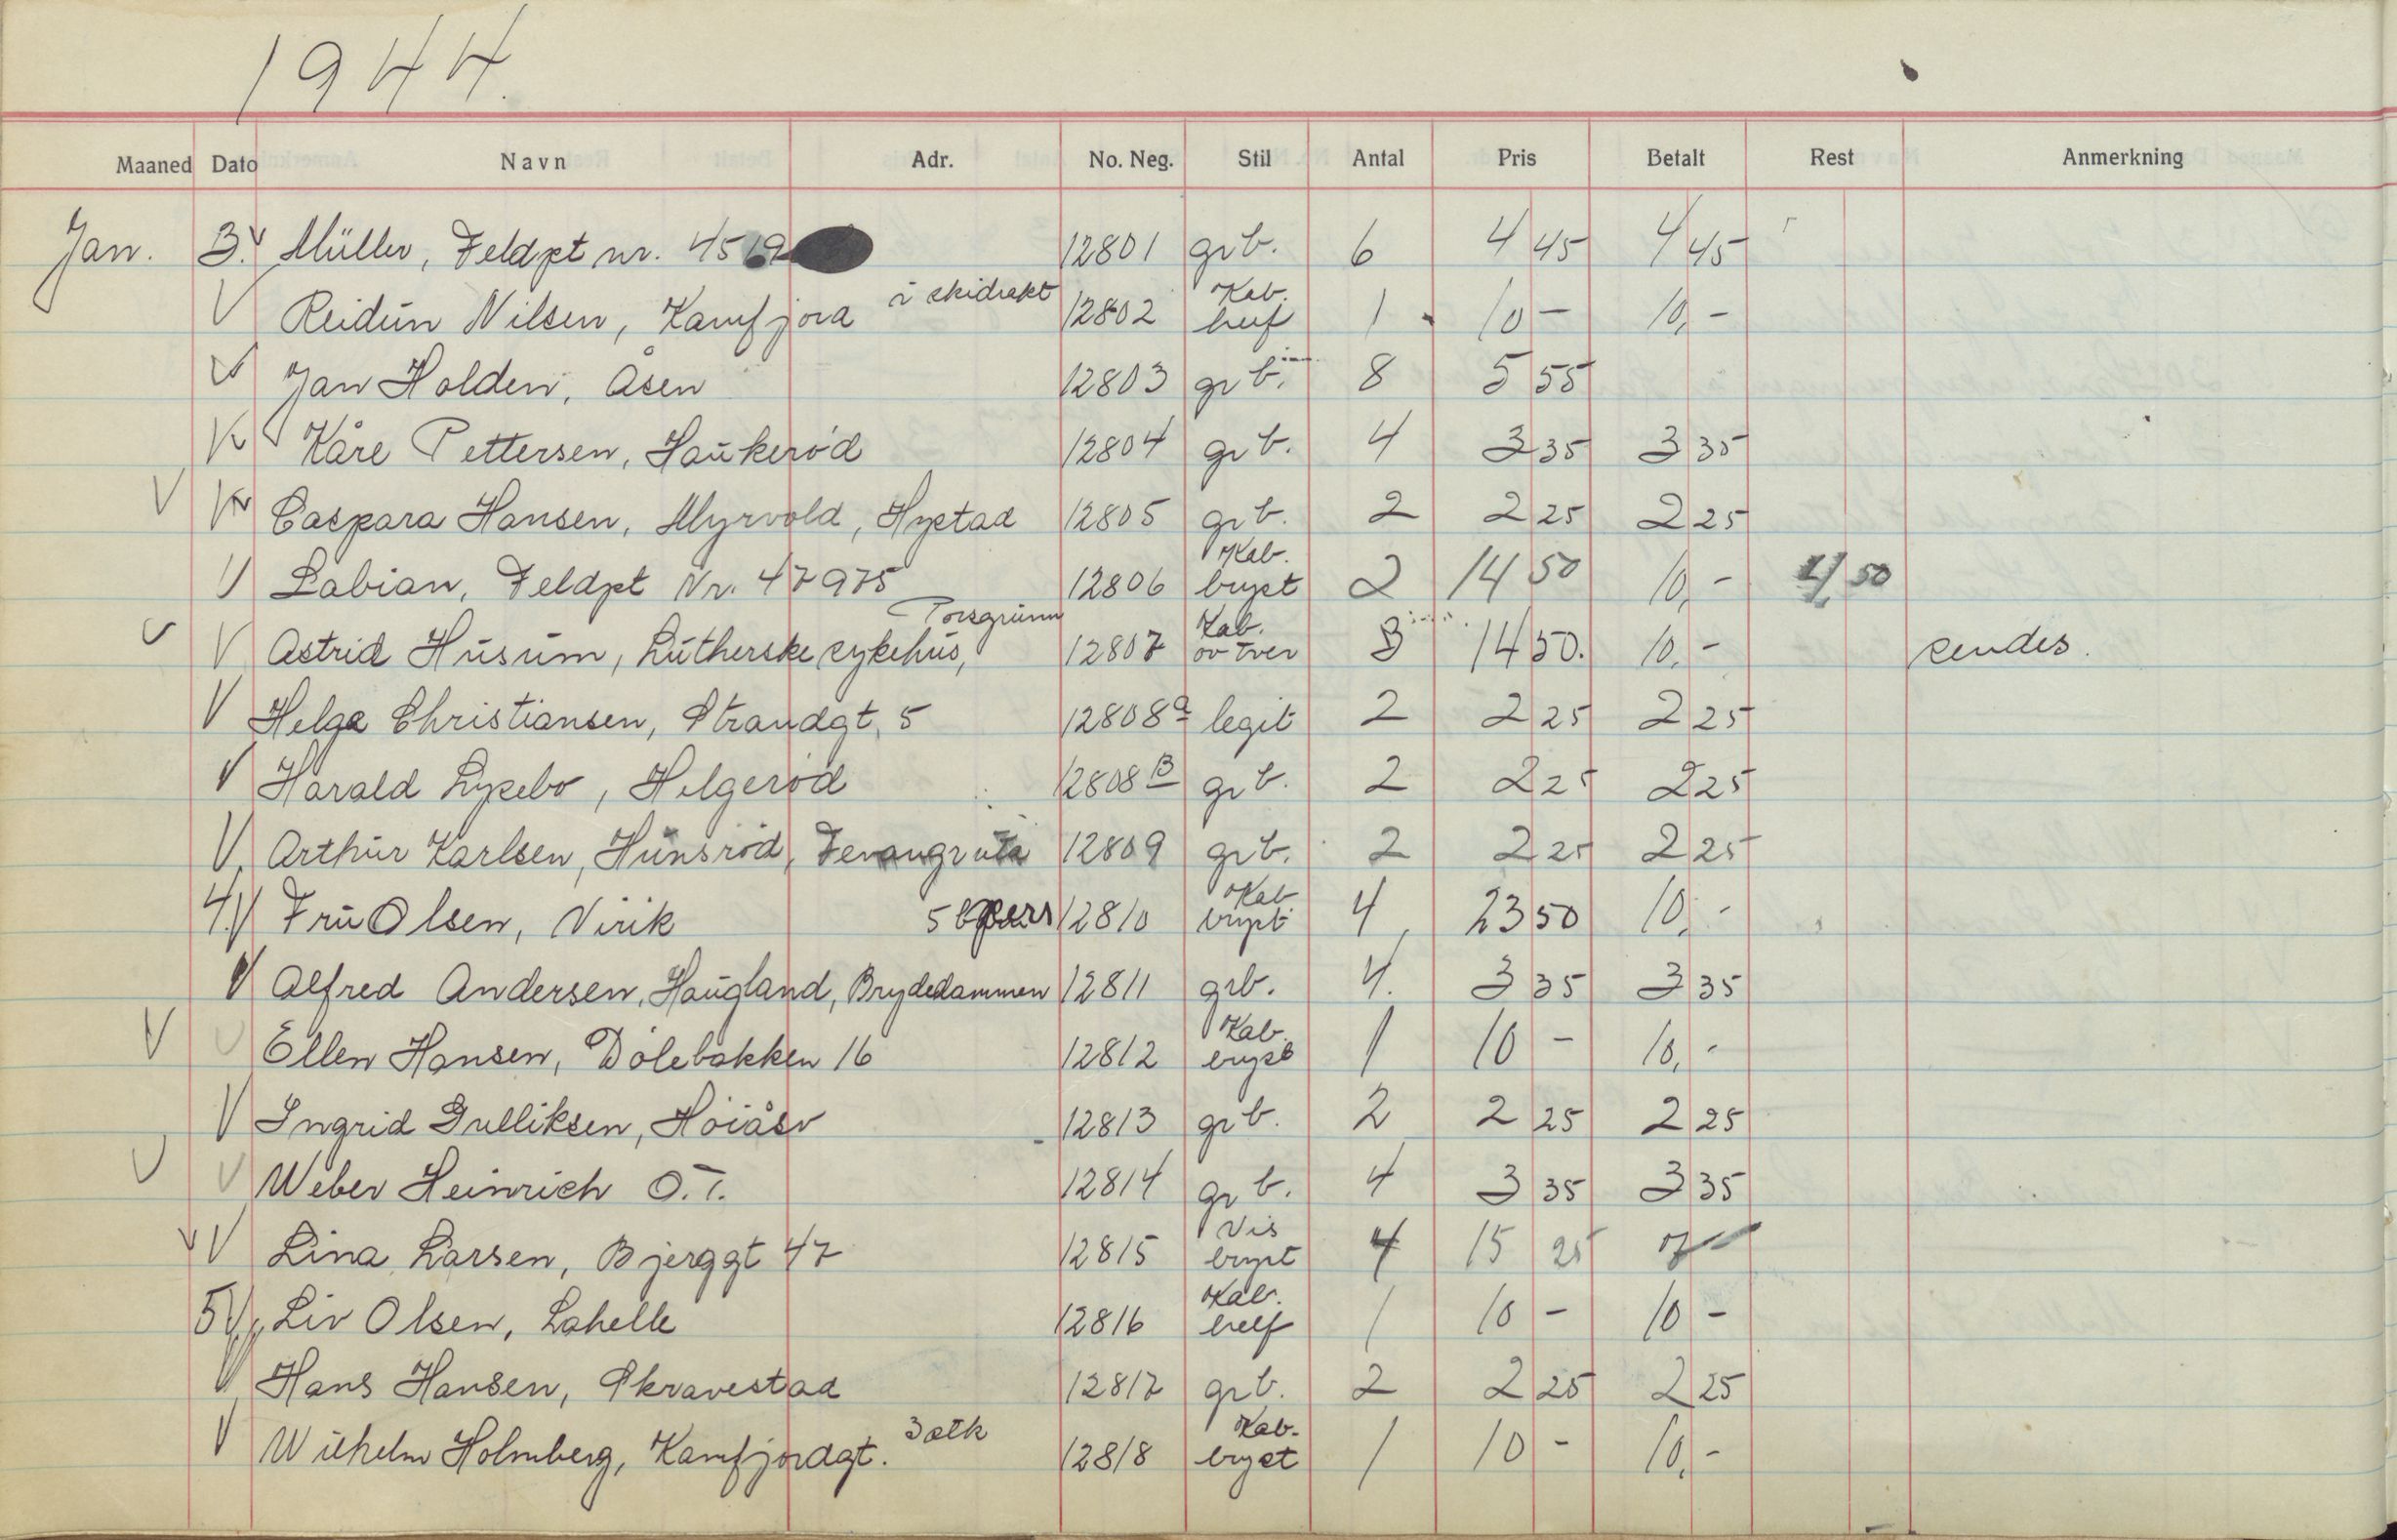 1944.
Maaned Dato Navn Adr. No. Neg. Stil Antal Pris Betalt Rest Anmerkning
Jan. 3. Müller, Feldpt nr. 4519 12801 grb. 6 4 45 4 45
Reidun Nilsen, Kamfjord i skidrakt 12802 Kab. helf 1 10 - 10, -
Jan Holden, Åsen 12803 grb. 8 5 55
Kåre Pettersen, Haukerød 12804 grb. 4 3 35 3 35
Caspara Hansen, Myrvold, Hystad 12805 grb. 2 2 25 2 25
Labian, Feldpt Nr. 47975 12806 Kab. bryst 2 14 50 10, - 4 50
Astrid Husum, Lutherske sykehus, Porsgrunn 12807 Kab. ov tver 3 14 50. 10, - sendes.
Helga Christiansen, Strandgt. 5 12808a legit 2 2 25 2 25
Harald Lysebo, Helgerød 12808B grb. 2 2 25 2 25
Arthur Karlsen, Hunsrød, 12809 grb. 2 2 25 2 25
4. Fru Olsen, Virik 5 pers 12810 Kab bryst 4 23 50 10, -
Alfred Andersen, Haugland, Brydedammen 12811 grb. 4. 3 35 3 35
Ellen Hansen, Dølebakken 16 12812 Kab. bryst 1 10 - 10, -
Ingrid Gulliksen, Høiåsv 12813 grb. 2 2 25 2 25
Weber Heinrich O.T. 12814 grb. 4 3 35 3 35
Lina Larsen, Bjerggt 47 12815 Vis bryst 4 15 25 7 -
5 Liv Olsen, Lahelle 12816 Kab. helf 1 10 - 10 -
Hans Hansen, Skravestad 12817 grb. 2 2 25 2 25
Wilhelm Holmberg, Kamfjordgt. 3 stk 12818 Kab. bryst 1 10 - 10, -